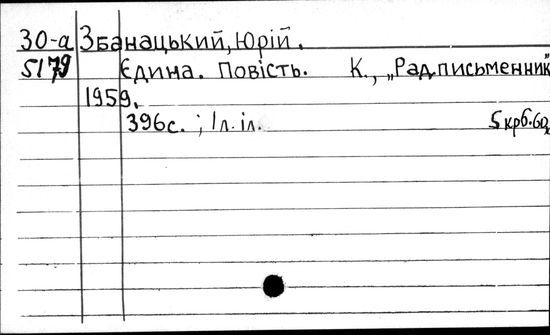 30-а Збанацький, Юрій.
5179 Єдина. Повість. К., „Рад.письменник"
1959.
396с. ; 1л.іл. 5крб.60